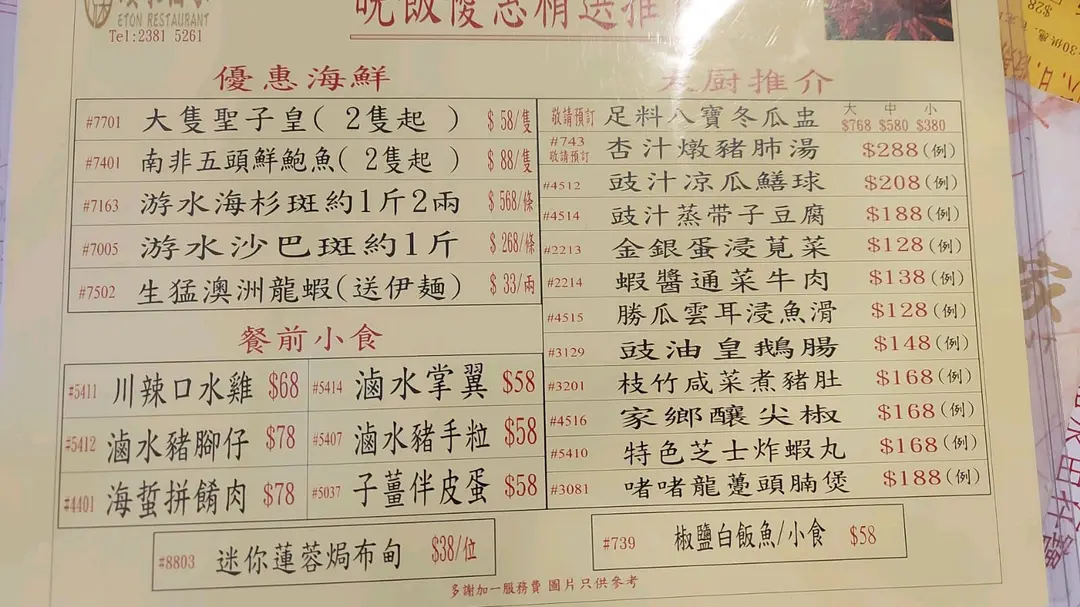 ETON RESTAURANT
Tel:2381 5261
晚飯優惠精選推
優惠海鮮
#7701 大隻聖子皇( 2隻起 ) $ 58/隻
#7401 南非五頭鮮鮑魚( 2隻起 ) $ 88/隻
#7163 游水海杉斑約1斤2兩 $ 568/條
#7005 游水沙巴斑約1斤 $ 268/條
#7502 生猛澳洲龍蝦(送伊麵) $ 33/兩
餐前小食
#5411 川辣口水雞 $68 #5414 滷水掌翼 $58
#5412 滷水豬腳仔 $78 #5407 滷水豬手粒 $58
#4401 海蜇拼餚肉 $78 #5037 子薑伴皮蛋 $58
廚推介
大 中 小
敬請預訂 足料八寶冬瓜盅 $768 $580 $380
#743 敬請預訂 杏汁燉豬肺湯 $288(例)
#4512 豉汁凉瓜鱔球 $208(例)
#4514 豉汁蒸带子豆腐 $188(例)
#2213 金銀蛋浸莧菜 $128(例)
#2214 蝦醬通菜牛肉 $138(例)
#4515 勝瓜雲耳浸魚滑 $128(例)
#3129 豉油皇鵝腸 $148(例)
#3201 枝竹咸菜煮豬肚 $168(例)
#4516 家鄉釀尖椒 $168(例)
#5410 特色芝士炸蝦丸 $168(例)
#3081 啫啫龍躉頭腩煲 $188(例)
#8803 迷你蓮蓉焗布甸 $38/位
#739 椒鹽白飯魚/小食 $58
多謝加一服務費 圖片只供參考